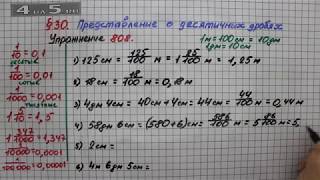 4АО5.RU
§30. Представление о десятичных дробях
Упражнение 808.
1м=100см=10дм
1дм=10см
1/10 = 0,1
десятые
1/100 = 0,01
сотые
1/1000 = 0,001
тысячные
1 5/10 = 1,5
1 347/1000 = 1,347
1/10000 = 0,0001
1/100000 = 0,00001
1) 125см = 125/100 м = 1 25/100 м = 1,25м
2) 18см = 18/100 м = 0,18м
3) 4дм 4см = 40см+4см = 44/100 м = 0,44м
4) 58дм 6см = (580+6)см = 586/100 м = 5 86/100 м = 5,
5) 2см =
6) 4м 6дм 5см =